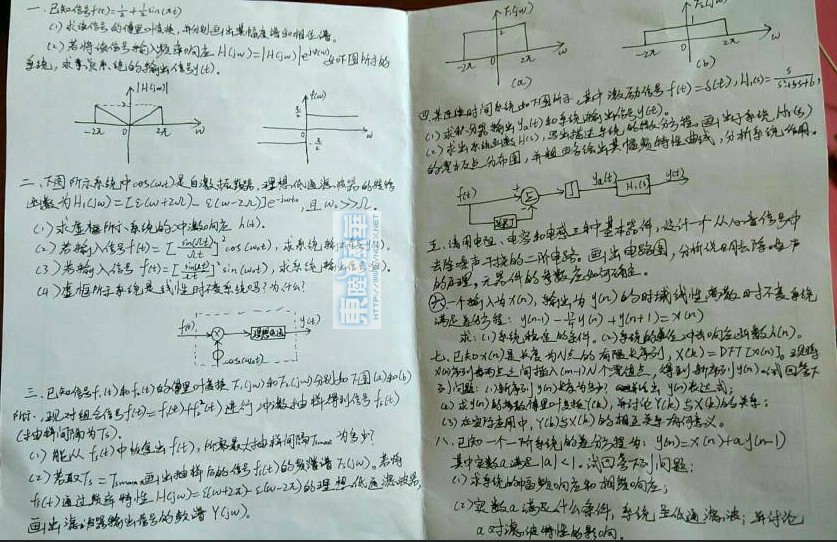 一、已知信号f(t)=½+½sin(πt)
(1)求该信号的傅里叶变换，并分别画出其幅度谱和相位谱。
(2)若将该信号输入频率响应H(jω)=|H(jω)|e^jφ(ω)如下图所示的
系统，求系统的输出信号y(t)。
|H(jω)|
-2π 0 2π ω
φ(ω)
π/2
0 ω
-π/2
二、下图所示系统中cos(ω₀t)是自激振荡器，理想低通滤波器的转移
函数为H₁(jω)=[ε(ω+2Ω)-ε(ω-2Ω)]e^-jωt₀，且ω₀>>Ω。
(1)求虚框所示系统的冲激响应h(t)。
(2)若输入信号f(t)=[sin(Ωt)/Ωt]²cos(ω₀t)，求系统输出信号y(t)。
(3)若输入信号f(t)=[sin(Ωt)/Ωt]²sin(ω₀t)，求系统输出信号y(t)。
(4)虚框所示系统是线性时不变系统吗？为什么？
f(t) × 理想低通 y(t)
cos(ω₀t)
三、已知信号f₁(t)和f₂(t)的傅里叶变换F₁(jω)和F₂(jω)分别如下图(a)和(b)
所示，现对组合信号f(t)=f₁(t)+f₂²(t)进行冲激抽样得到信号fs(t)
(抽样间隔为Ts)。
(1)能从fs(t)中恢复出f(t)，所需最大抽样间隔Tsmax为多少？
(2)若取Ts=Tsmax画出抽样后的信号fs(t)的频谱Fs(jω)。若将
fs(t)通过频率特性H(jω)=ε(ω+2π)-ε(ω-2π)的理想低通滤波器，
画出滤波器输出信号的频谱Y(jω)。
F₁(jω)
2
-2π 0 2π ω
(a)
F₂(jω)
1
-2π 0 2π ω
(b)
四、某连续时间系统如下图所示，其中激励信号f(t)=δ(t)，H₁(s)=s/(s²+5s+6)，
(1)求积分器输出ya(t)和系统输出信号y(t)。
(2)求出系统函数H(s)，写出描述系统的微分方程。画出子系统H₁(s)
的零极点分布图，并粗略绘出其幅频特性曲线，分析系统作用。
f(t) Σ ∫ ya(t) H₁(s) y(t)
五、请用电阻、电容和电感三种基本器件，设计一个从心音信号中
去除噪声干扰的二阶电路。画出电路图，分析说明去除噪声
的原理。元器件的参数应如何确定。
六、一个输入为x(n)，输出为y(n)的时域线性离散时不变系统
满足差分方程：y(n-1)-
y(n)+y(n+1)=x(n)
求：(1)系统稳定的条件。(2)系统的单位冲击响应函数h(n)。
七、已知x(n)是长度为N点的有限长序列，X(k)=DFT[x(n)]。现将
x(n)序列每两点之间插入(m-1)个零值点，得到新序列y(n)，试回答下
列问题：(1)新序列y(n)长度为多少？
出y(n)表达式；
(2)求y(n)的离散傅里叶变换Y(k)，并讨论Y(k)与X(k)的关系；
(3)在实际应用中，Y(k)与X(k)的相互关系有何意义。
八、已知一个一阶系统的差分方程为：y(n)=x(n)+ay(n-1)
其中实数a满足|a|<1。试回答下列问题：
(1)求系统的幅频响应和相频响应；
(2)实数a满足什么条件，系统呈低通滤波；并讨论
a对滤波特性的影响。